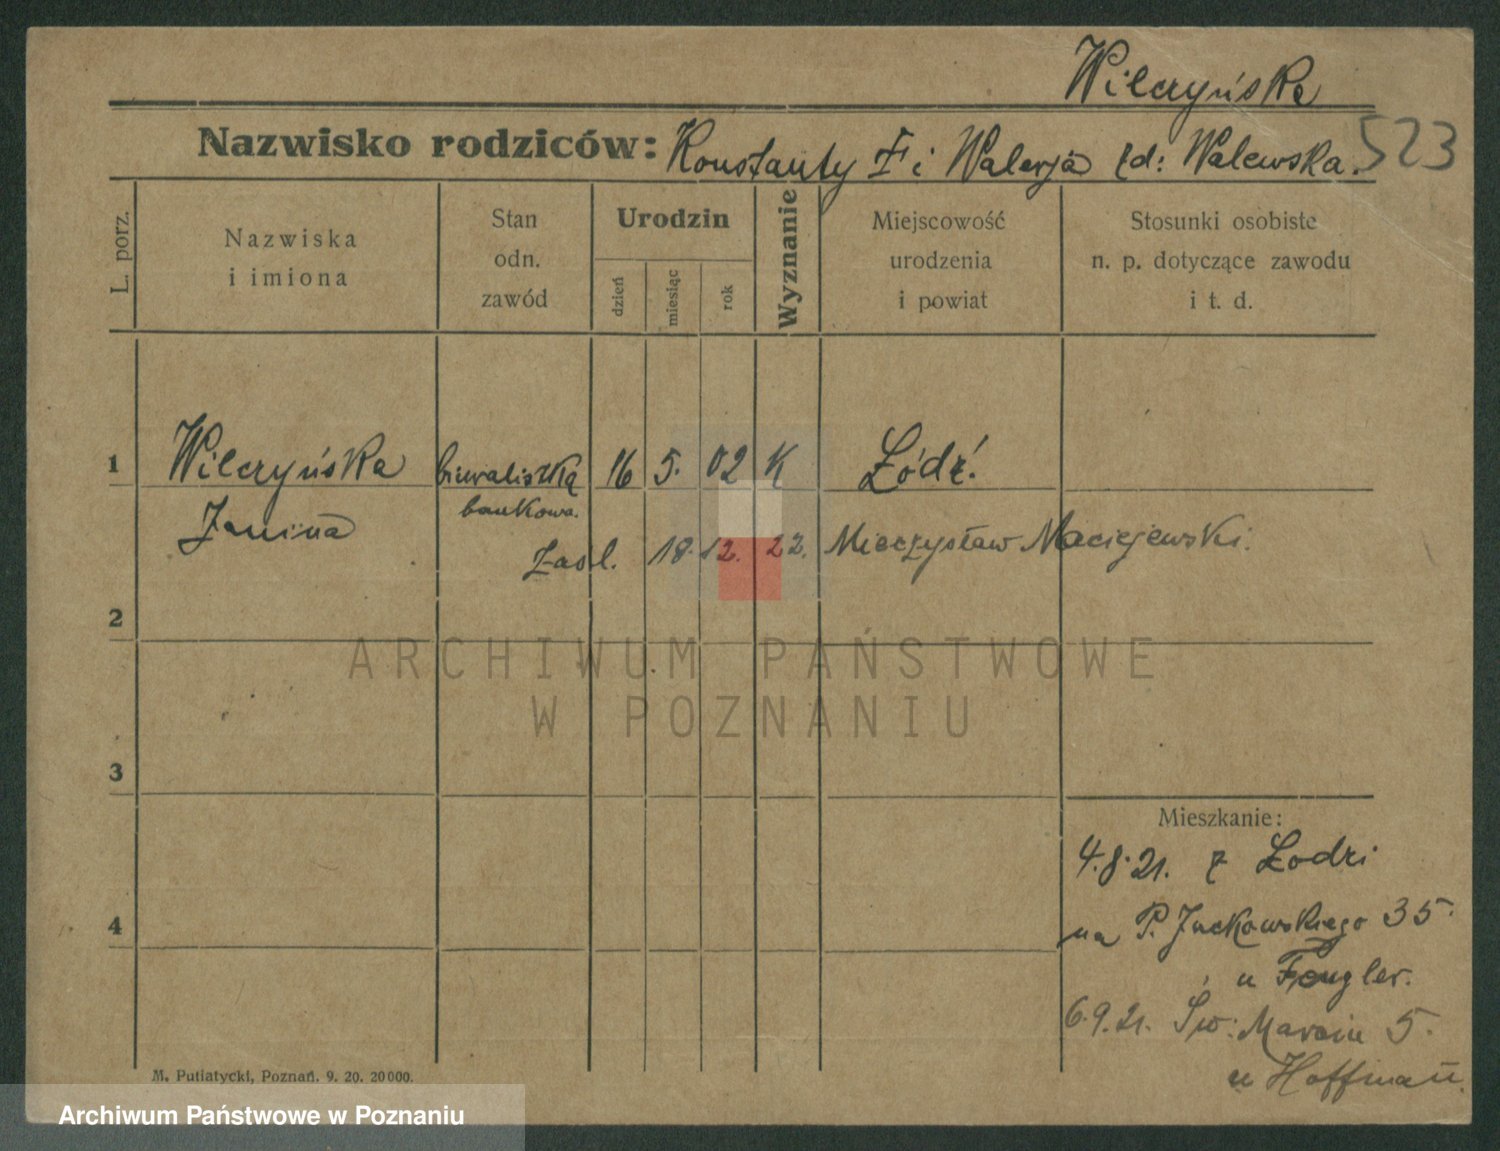 Wilczyńska
Nazwisko rodziców: Konstanty F i Walerja zd: Walewska. 523
L. porz.
Nazwiska
i imiona
Stan
odn.
zawód
Urodzin
dzień
miesiąc
rok
Wyznanie
Miejscowość
urodzenia
i powiat
Stosunki osobiste
n. p. dotyczące zawodu
i t. d.
1 Wilczyńska biuralistką 16 5. 02 K Łódź.
Janina bankowa.
Zaśl. 18. 12. 22. Mieczysław Maciejewski.
2
3
4
Mieszkanie:
4.8.21. z Łodzi
na P. Jackowskiego 35.
u Fengler.
6.9.21. Św: Marcin 5.
u Hoffman
M. Putiatycki, Poznań. 9. 20. 20000.
ARCHIWUM PAŃSTWOWE
W POZNANIU
Archiwum Państwowe w Poznaniu